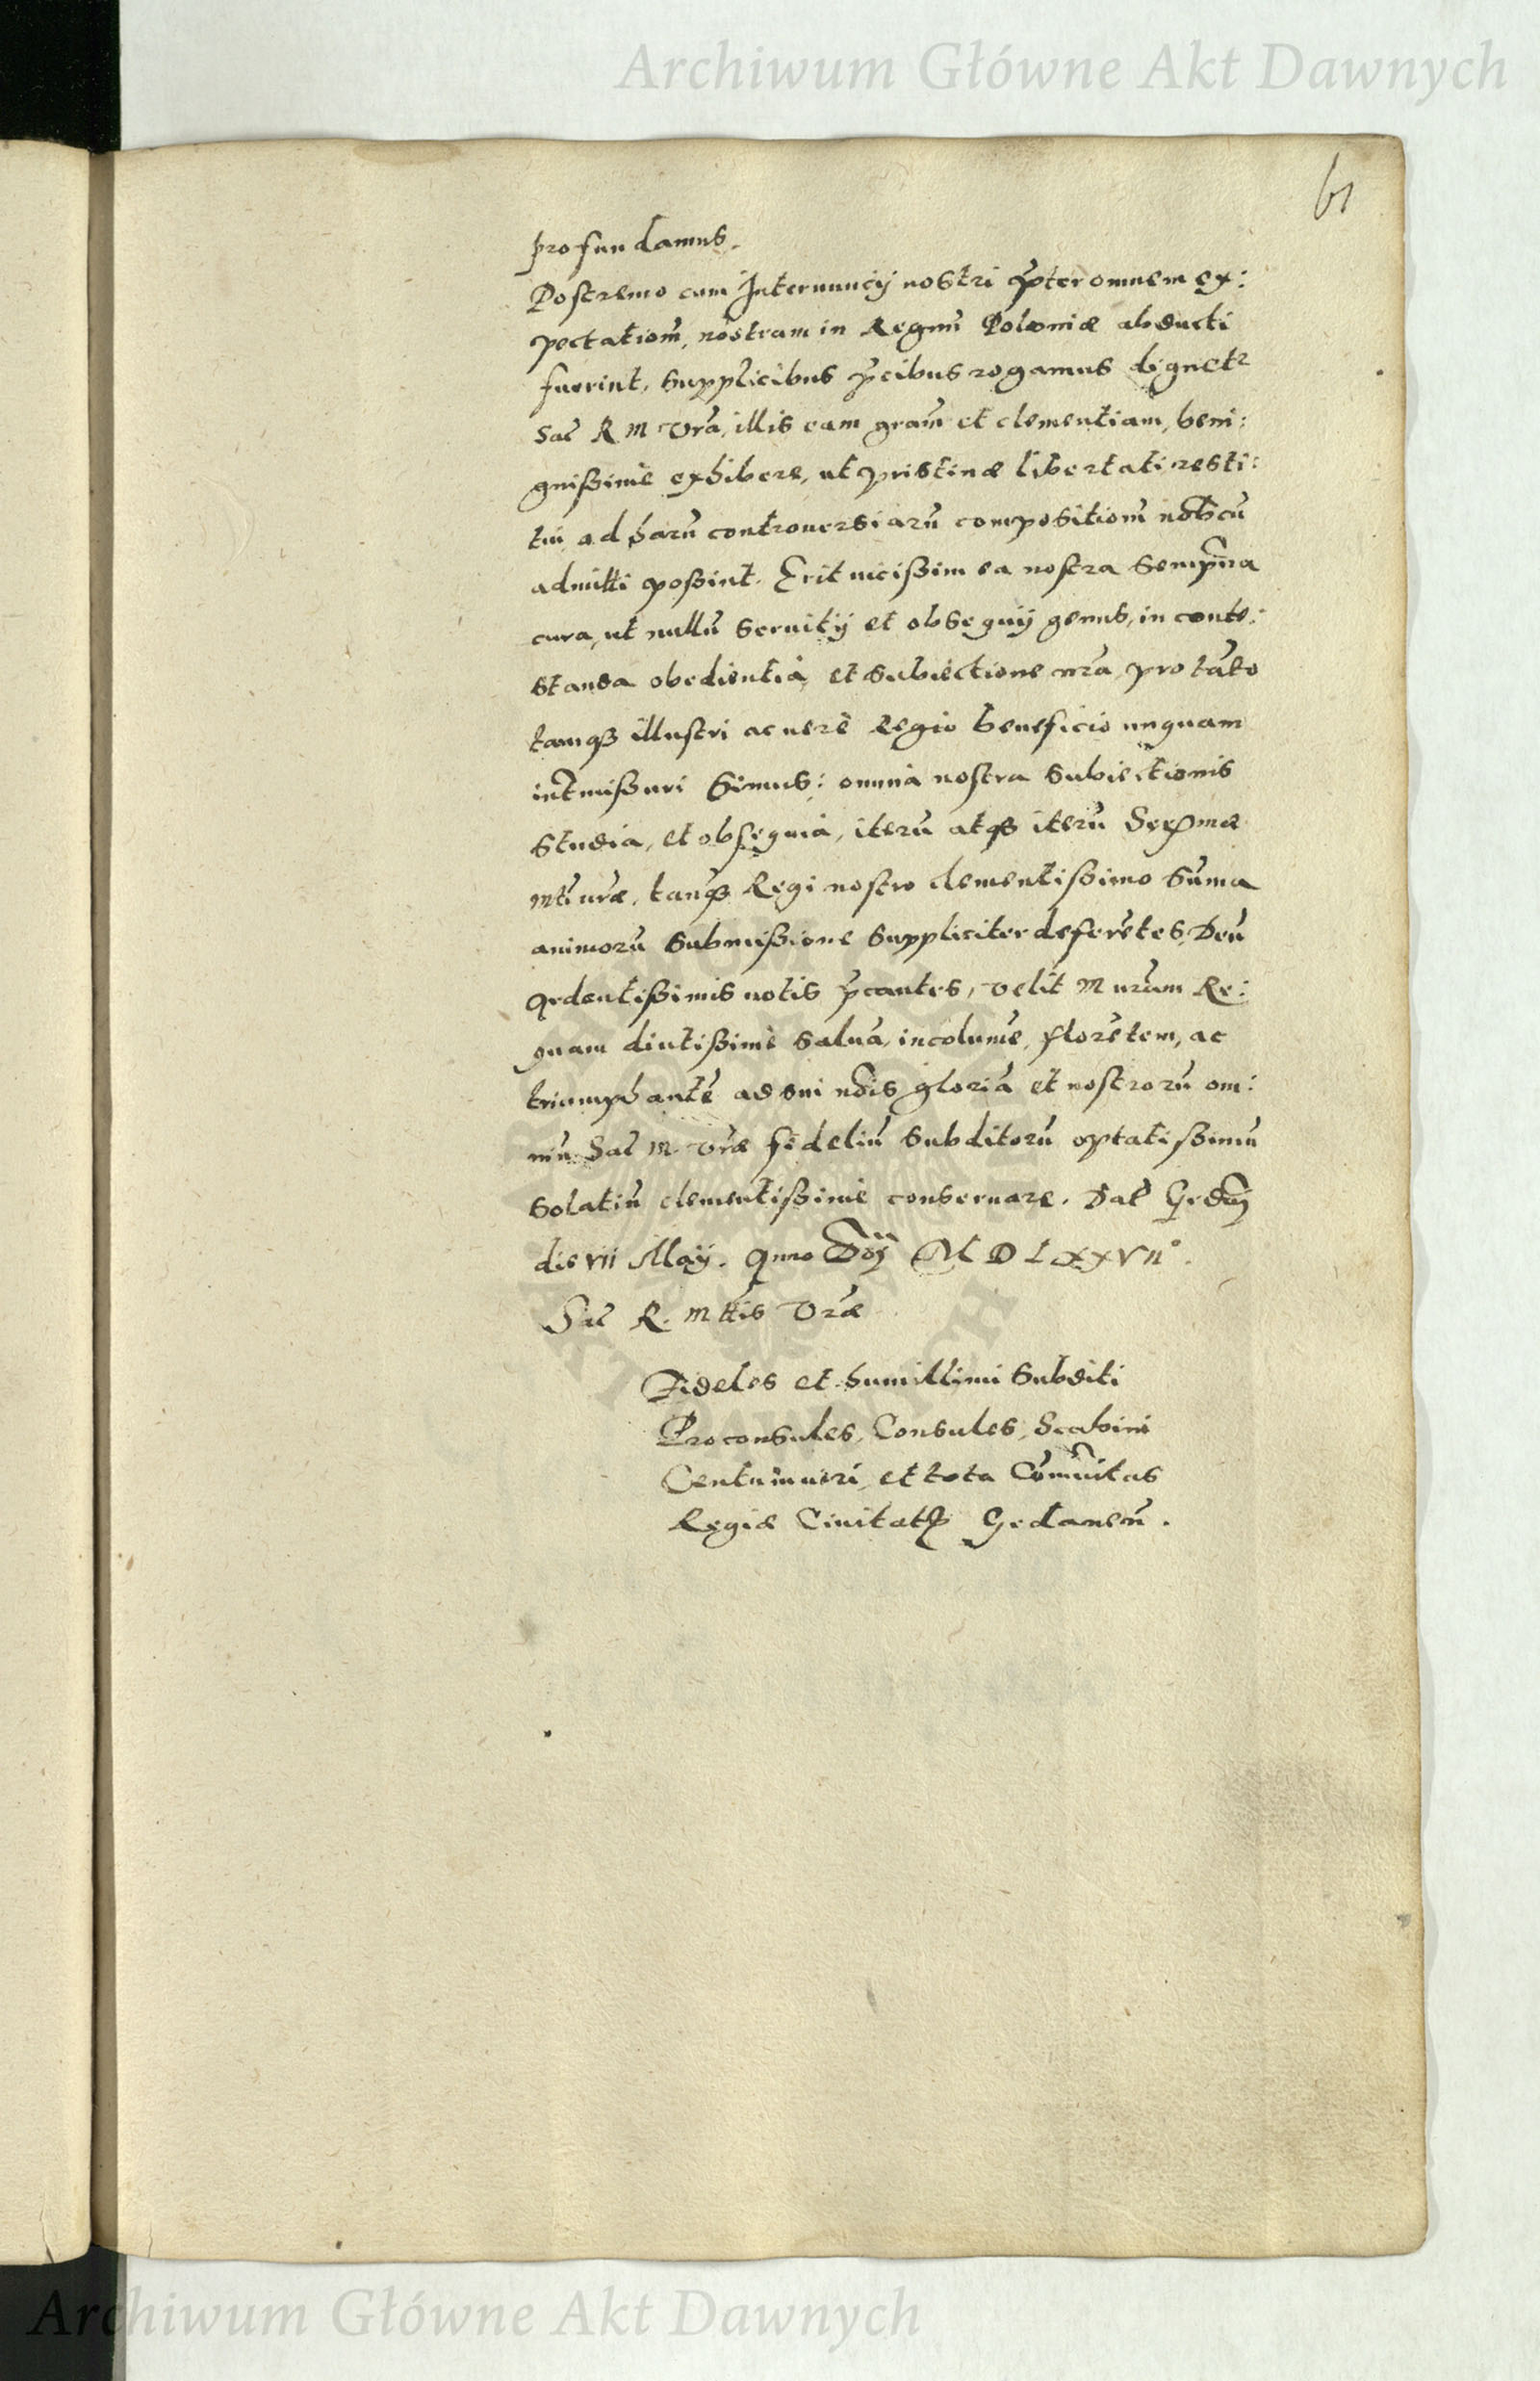 Archiwum Główne Akt Dawnych
61
profundamus.
Postremo cum Internuncij nostri p̃ter omnem ex:
pectatiom̃, nostram in Regnũ Poloniæ abducti
fuerint, supplicibus p̃cibus rogamus dignetr
Sac R M Vr̃a, illis eam gram̃ et clementiam, beni:
gnißimè exhibere, ut pristinæ libertati resti:
tui ad harũ controuersiarũ compositiom̃ nob̃cũ
admitti poßint. Erit uicißim ea nostra semp̃na
cura, ut nullũ seruitij et obsequij genus, in conte:
standa obedientia, et subiectione nr̃a, pro tãto
tamqꝫ illustri ac uerè Regio beneficio unquam
int̃mißuri simus: omnia nostra subiectionis
studia, et obsequia, iterũ atqꝫ iterũ Serm̃æ
mti ur̃æ, tanqꝫ Regi nostro clementißimo sum̃a
animorũ submißione suppliciter deferẽtes, Deũ
ardentißimis uotis p̃cantes, velit M ur̃am Re:
giam diutißimè saluã, incolumẽ, florẽtem, ac
triumphantẽ ad sui nõis gloriã et nostrorũ om:
niũ Sac M. Vr̃æ fidelium subditorũ optatißimũ
solatiũ clementißimè conseruare. Dat Gedañ
die VII Maij. Anno Doj̃ M D L XXVIIo.
Sac R. Mttis Vr̃æ
Fideles et humillimi subditi
Proconsules, Consules, Scabini
Centumuiri, et tota Com̃uitas
Regiæ Ciuitatꝭ Gedaneñ.
Archiwum Główne Akt Dawnych